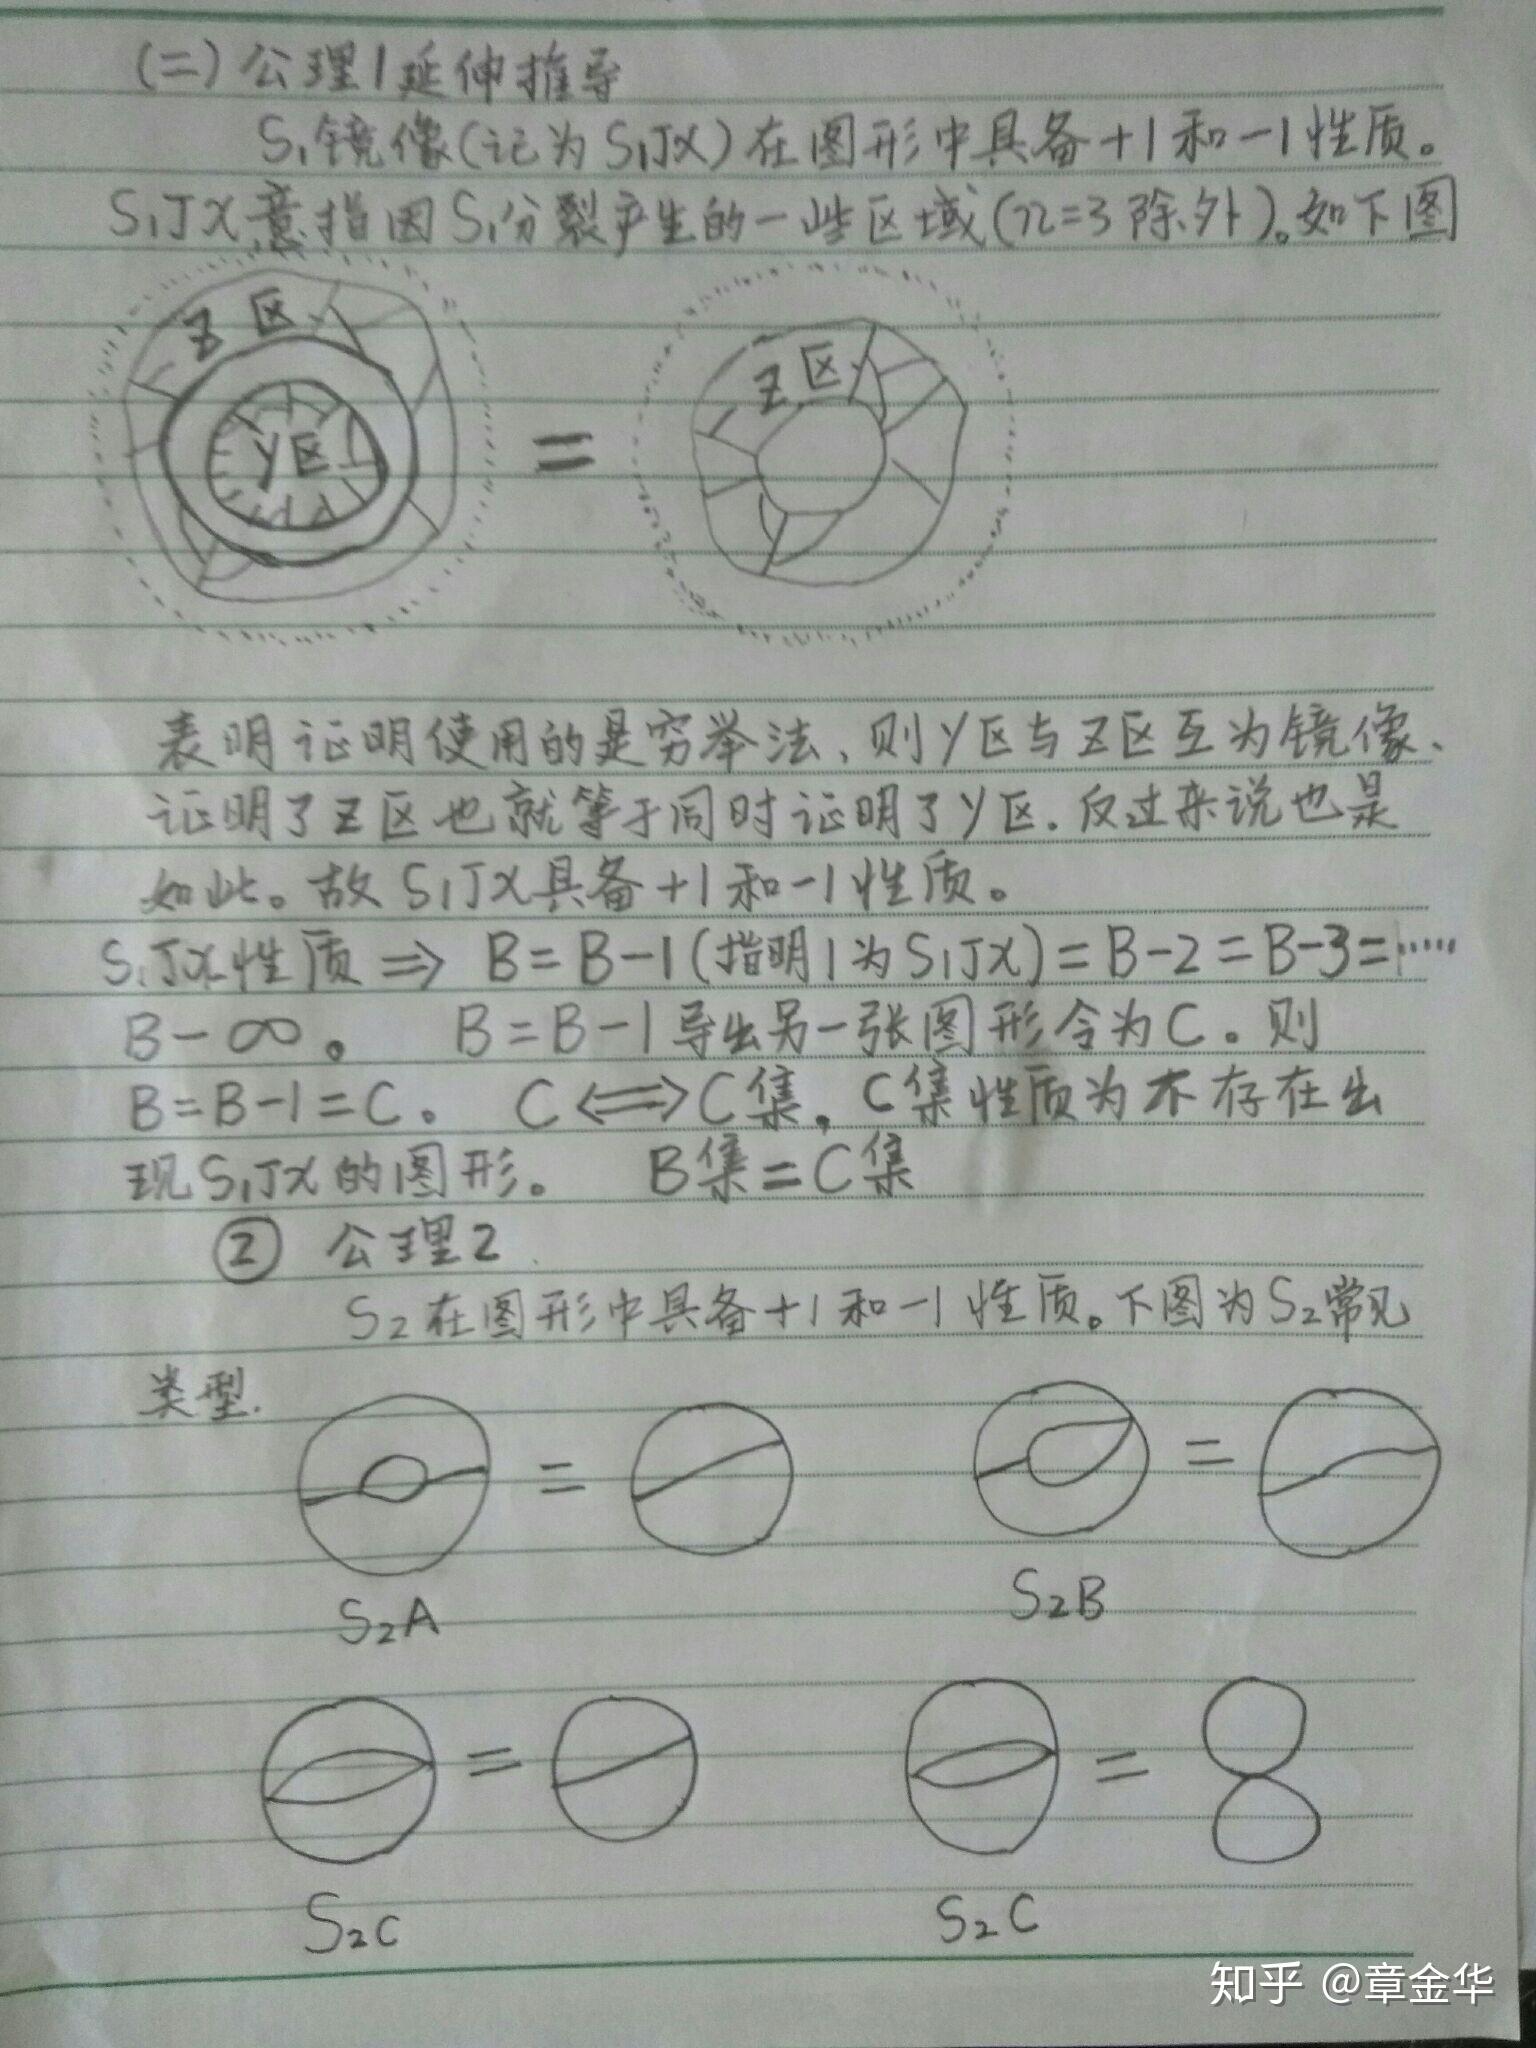 (二)公理1延伸推导
S₁镜像(记为S₁JX)在图形中具备+1和-1性质。
S₁JX意指因S₁分裂产生的一些区域(n=3除外)。如下图
Z区
Y区
=
Z区
表明证明使用的是穷举法,则Y区与Z区互为镜像、
证明了Z区也就等于同时证明了Y区.反过来说也是
如此。故S₁JX具备+1和-1性质。
S₁JX性质⇒B=B-1(指明1为S₁JX)=B-2=B-3=……
B-∞。 B=B-1导出另一张图形令为C。则
B=B-1=C。 C⇔C集.C集性质为不存在出
现S₁JX的图形。 B集=C集
② 公理2
S₂在图形中具备+1和-1性质。下图为S₂常见
类型.
= =
S₂A S₂B
= =
S₂C S₂C
知乎 @章金华